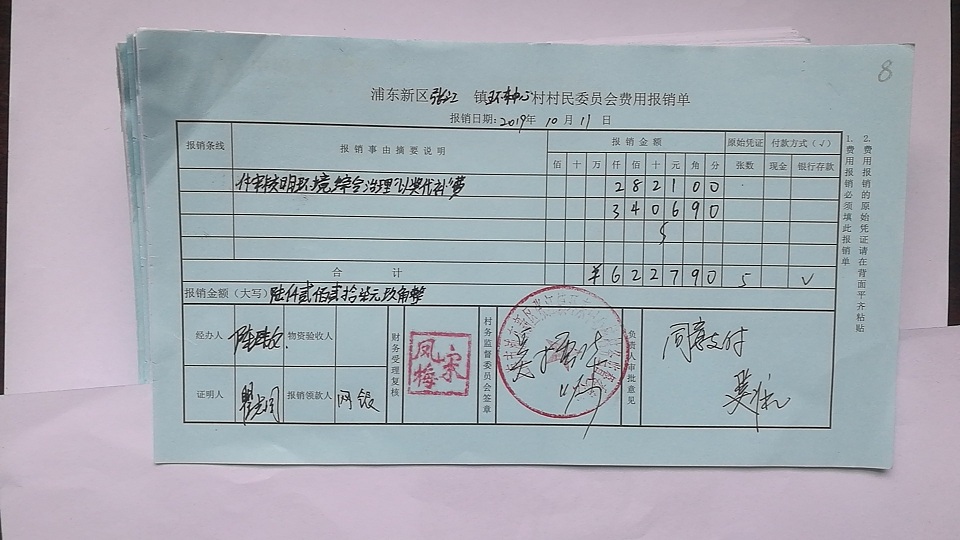 8
浦东新区张江 镇环东中心村村民委员会费用报销单
报销日期:2019年 10 月 11 日
报销条线 报销事由摘要说明 报销金额 原始凭证 付款方式(√)
佰 十 万 仟 佰 十 元 角 分 张数 现金 银行存款
环境综合治理"以奖代补"费 2 8 2 1 0 0
3 4 0 6 9 0
合 计 ¥ 6 2 2 7 9 0 5 √
报销金额(大写) 陆仟贰佰贰拾柒元玖角整
经办人 物资验收人 财务受理复核 凤梅宋 村务监督委员会签章 负责人审批意见 同意支付
证明人 报销领款人 网银
1.费用报销必须填此报销单
2.费用报销的原始凭证请在背面平齐粘贴